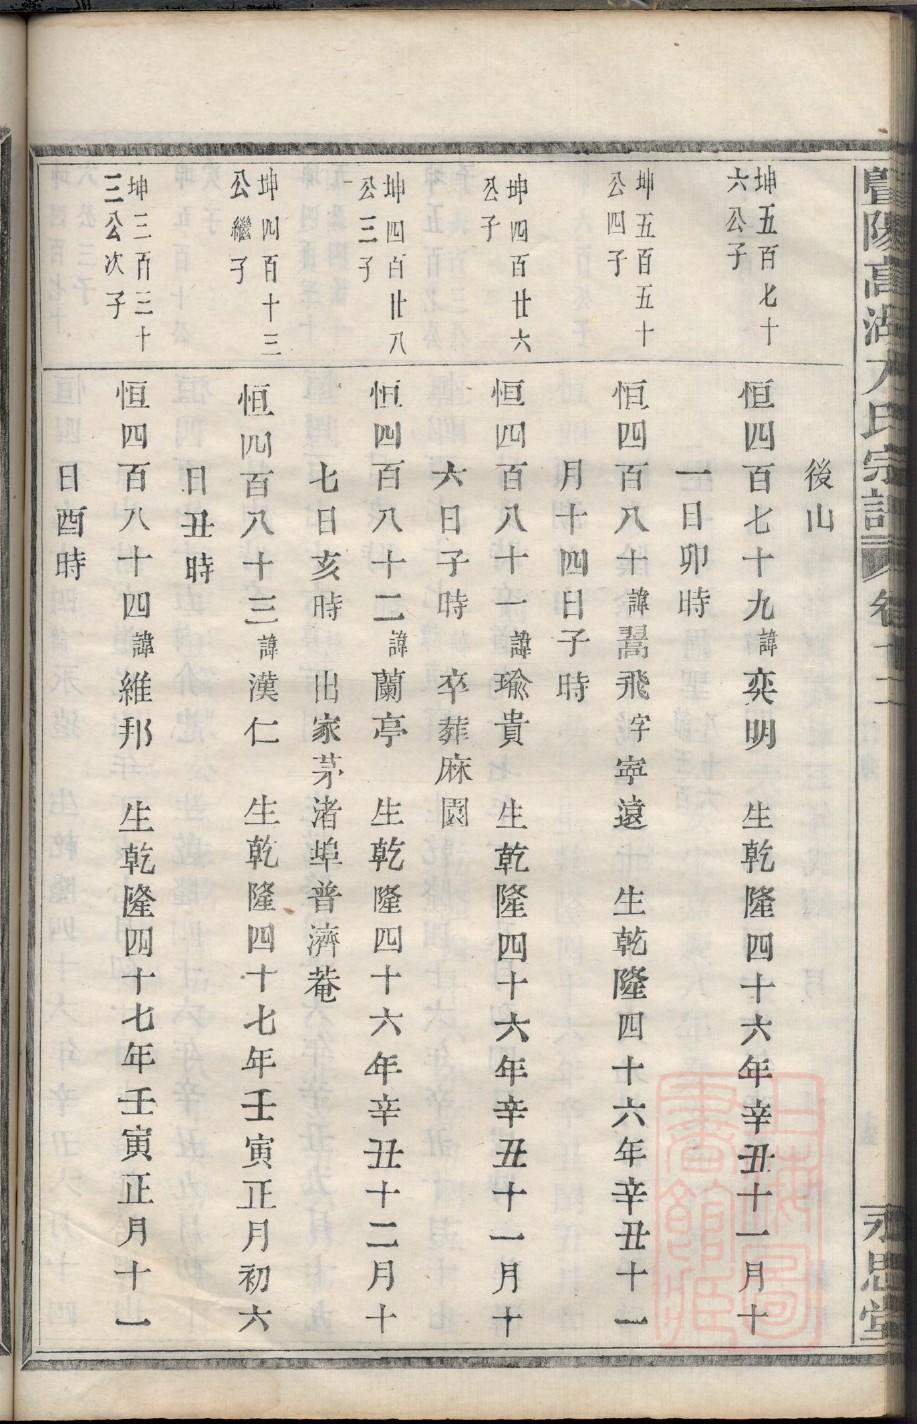 暨陽高湖方氏宗譜 卷十二 永思堂
後山
坤五百七十
六公子
恒四百七十九諱奕明 生乾隆四十六年辛丑十一月十
一日卯時
坤五百五十
公四子
恒四百八十諱翯飛字寧遠 生乾隆四十六年辛丑十一
月十四日子時
坤四百廿六
公子
恒四百八十一諱瑜貴 生乾隆四十六年辛丑十一月十
六日子時 卒葬麻園
坤四百廿八
公三子
恒四百八十二諱蘭亭 生乾隆四十六年辛丑十二月十
七日亥時 出家茅渚埠普濟菴
坤四百十三
公繼子
恒四百八十三諱漢仁 生乾隆四十七年壬寅正月初六
日丑時
坤三百三十
三公次子
恒四百八十四諱維邦 生乾隆四十七年壬寅正月十一
日酉時